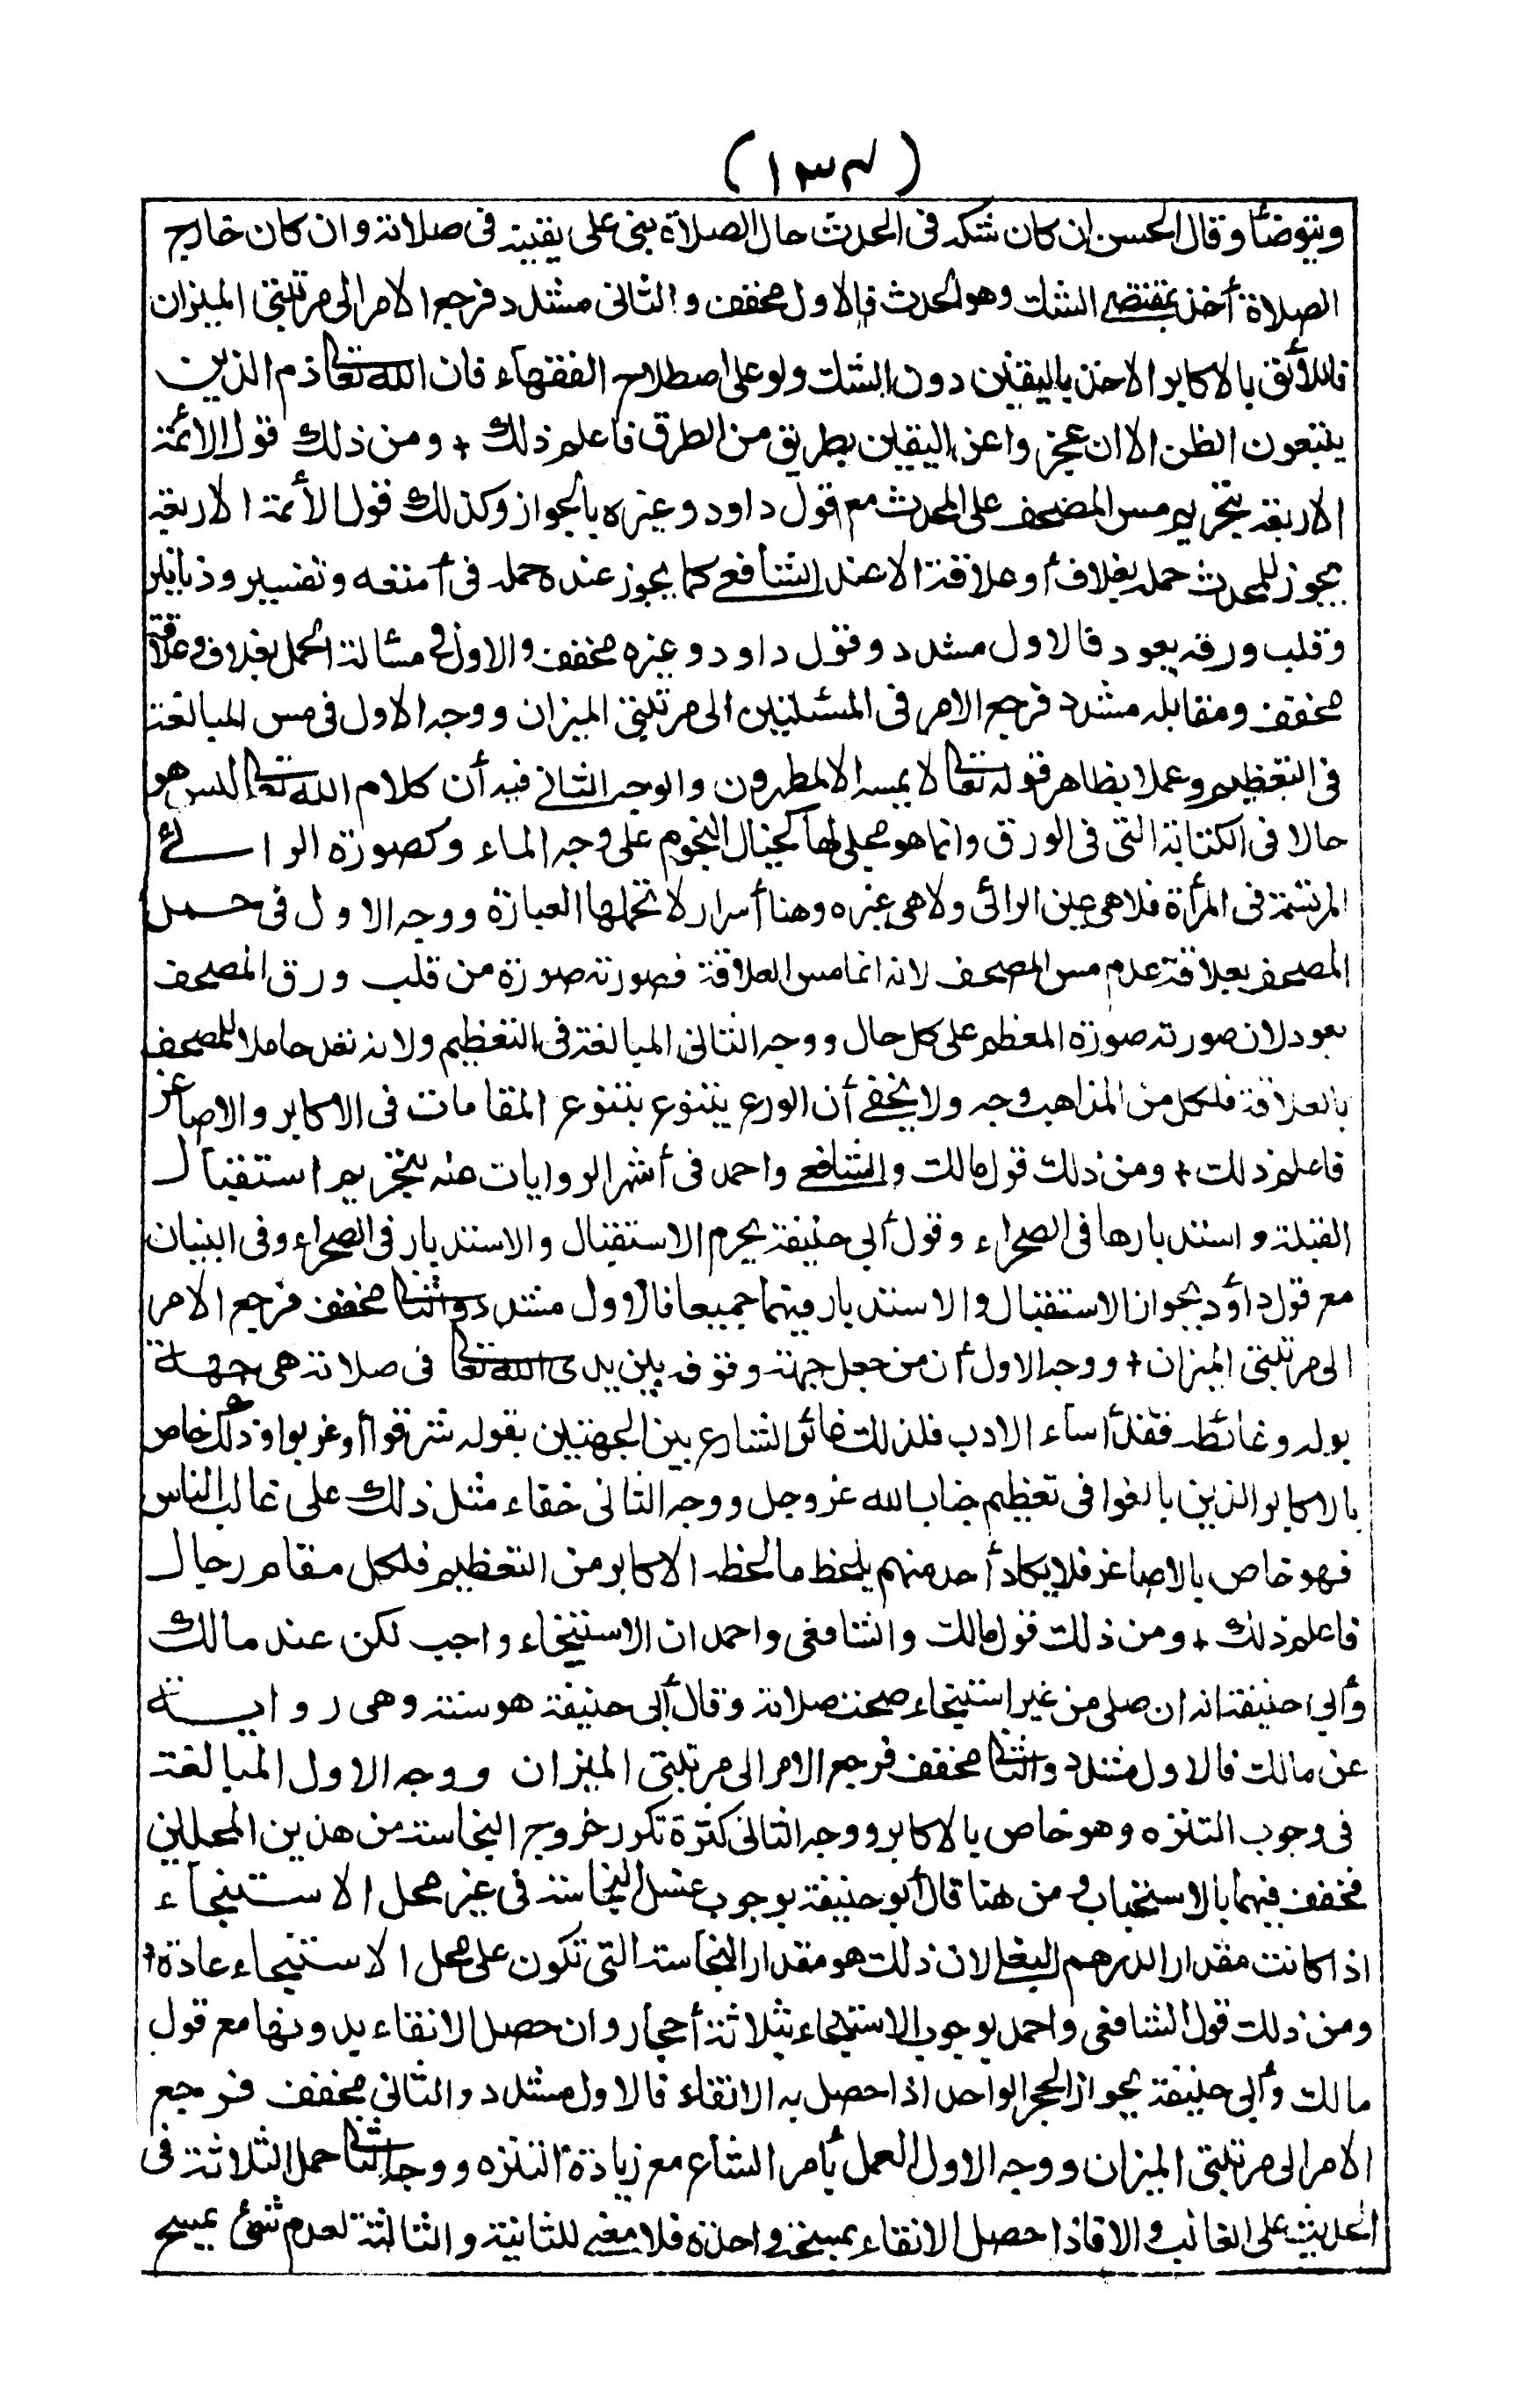 (١٣٤)
ويتوضأ وقال الحسن ان كان شكه فى الحدث حال الصلاة بنى على يقينه فى صلاته وان كان خارج
الصلاة أخذ بمقتضى الشك وهو الحدث فالاول مخفف والثانى مشدد فرجع الامر الى مرتبتى الميزان
فاللائق بالاكابر الاخذ باليقين دون الشك ولو على اصطلاح الفقهاء فان الله تعالى ذم الذين
يتبعون الظن الا ان عجزوا عن اليقين بطريق من الطرق فاعلم ذلك + ومن ذلك قول الائمة
الاربعة بتحريم مس المصحف على المحدث مع قول داود وغيره بالجواز وكذلك قول الأئمة الاربعة
يجوز للمحدث حمله بغلاف أو علاقة الا عند الشافعى كما يجوز عنده حمله فى أمتعه وتفسير ودنانير
وقلب ورقه بعود فالاول مشدد وقول داود وغيره مخفف والاول فى مسألة الحمل بغلاف وعلاقة
مخفف ومقابله مشدد فرجع الامر فى المسئلتين الى مرتبتى الميزان ووجه الاول فى مس المبالغة
فى التعظيم وعملا بظاهر قوله تعالى لا يمسه الا المطهرون والوجه الثانى فيه أن كلام الله تعالى ليس هو
حالا فى الكتابة التى فى الورق وانما هو مجلى لها كخيال النجوم على وجه الماء وكصورة الرائى
المرتسمة فى المرأة فلا هى عين الرائى ولا هى غيره وهنا أسرار لا تحملها العبارة ووجه الاول فى حمل
المصحف بعلاقة عدم مس المصحف لانه انما مس العلاقة فصورته صورة من قلب ورق المصحف
بعود لان صورته صورة المعظم على كل حال ووجه الثانى المبالغة فى التعظيم ولانه نعل حاملا للمصحف
بالعلاقة فلكل من المذاهب وجه ولا يخفى أن الورع يتنوع بتنوع المقامات فى الاكابر والاصاغر
فاعلم ذلك + ومن ذلك قول مالك والشافعى واحمد فى أشهر الروايات عنه بتحريم استقبال
القبلة واستدبارها فى الصحراء وقول أبى حنيفة يحرم الاستقبال والاستدبار فى الصحراء وفى البنيان
مع قول داؤد بجواز الاستقبال والاستدبار فيهما جميعا فالاول مشدد والثانى مخفف فرجع الامر
الى مرتبتى الميزان + ووجه الاول أن من جعل جهة وقوفه بين يدى الله تعالى فى صلاته هى جهة
بوله وغائطه فقد أساء الادب فلذلك غائر الشارع بين الجهتين بقوله شرقوا أو غربوا وذلك خاص
بالاكابر الذين بالغوا فى تعظيم جناب الله عز وجل ووجه الثانى خفاء مثل ذلك على غالب الناس
فهو خاص بالاصاغر فلا يكاد أحد منهم يلحظ ما لحظه الاكابر من التعظيم فلكل مقام رجال
فاعلم ذلك + ومن ذلك قول مالك والشافعى واحمد ان الاستنجاء واجب لكن عند مالك
وأبى حنيفة انه ان صلى من غير استنجاء صحت صلاته وقال أبى حنيفة هو سنة وهى رواية
عن مالك فالاول مشدد والثانى مخفف فرجع الامر الى مرتبتى الميزان ووجه الاول المبالغة
فى وجوب التنزه وهو خاص بالاكابر ووجه الثانى كثرة تكرر خروج النجاسة من هذين المحلين
فخفف فيهما بالاستحباب ومن هنا قال أبو حنيفة بوجوب غسل النجاسة فى غير محل الاستنجاء
اذا كانت مقدار الدرهم البغلى لان ذلك هو مقدار النجاسة التى تكون على محل الاستنجاء عادة +
ومن ذلك قول الشافعى واحمد بوجوب الاستنجاء بثلاثة أحجار وان حصل الانقاء بدونها مع قول
مالك وأبى حنيفة بجواز الحجر الواحد اذا حصل به الانقاء فالاول مشدد والثانى مخفف فرجع
الامر الى مرتبتى الميزان ووجه الاول العمل بأمر الشارع مع زيادة التنزه ووجه الثانى حمل الثلاثة فى
الحديث على الغالب والا فاذا حصل الانقاء بمسحة واحدة فلا معنى للثانية والثالثة لعدم شئ يمسح